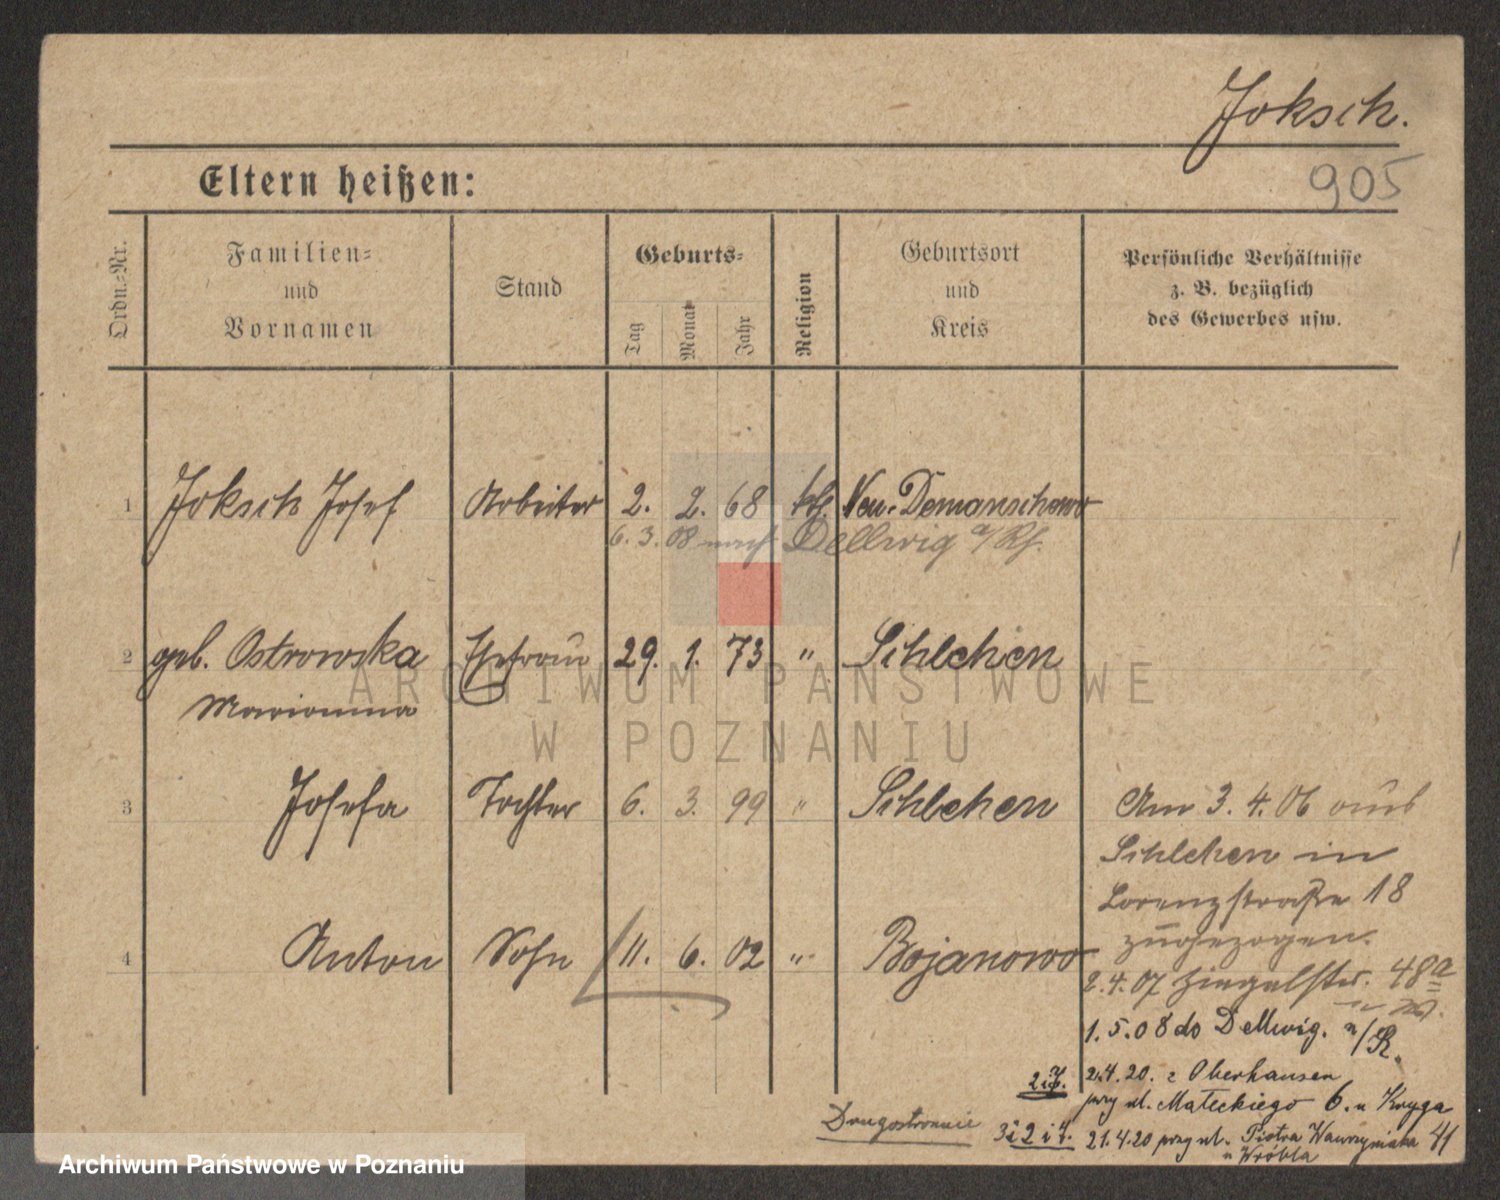 Joksch.
905
Eltern heißen:
Ordn.=Nr.
Familien=
und
Vornamen
Stand
Geburts=
Tag
Monat
Jahr
Religion
Geburtsort
und
Kreis
Persönliche Verhältnisse
z. B. bezüglich
des Gewerbes usw.
1 Joksch Josef Arbeiter 2. 2. 68 kth. Neu-Demanschewo
6. 3. 08 nach Dellwig a/Rh.
2 geb. Ostrowska Ehefrau 29. 1. 73 " Schlehen
Marianna
3 Josefa Tochter 6. 3. 99 " Schlehen
Am 3. 4. 06 aus
Schlehen in
Lorenzstraße 18
zugezogen.
4 Anton Sohn 11. 6. 02 " Bojanowo
2.4.07 Ziegelstr. 48a
1.5.08 do Dellwig. a/R.
2.4.20. z Oberhausen
przy ul. Małeckiego 6. u Kryga
Drugostronnie
3 i 2 i 7. 21.4.20 przy ul. Piotra Wawrzyniaka 41
u Wróbla
ARCHIWUM PAŃSTWOWE
W POZNANIU
Archiwum Państwowe w Poznaniu